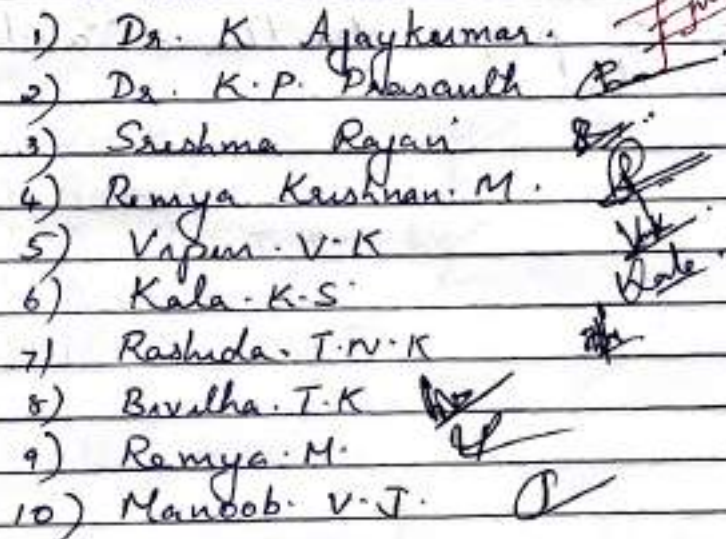 1) Dr. K Ajaykumar.
2) Dr. K.P. Prasanth
3) Sreshma Rajan
4) Remya Krishnan. M.
5) Vipin. V.K
6) Kala. K.S
7) Rashida. T.N.K
8) Bivitha. T.K
9) Remya. M.
10) Manoob. V.J.